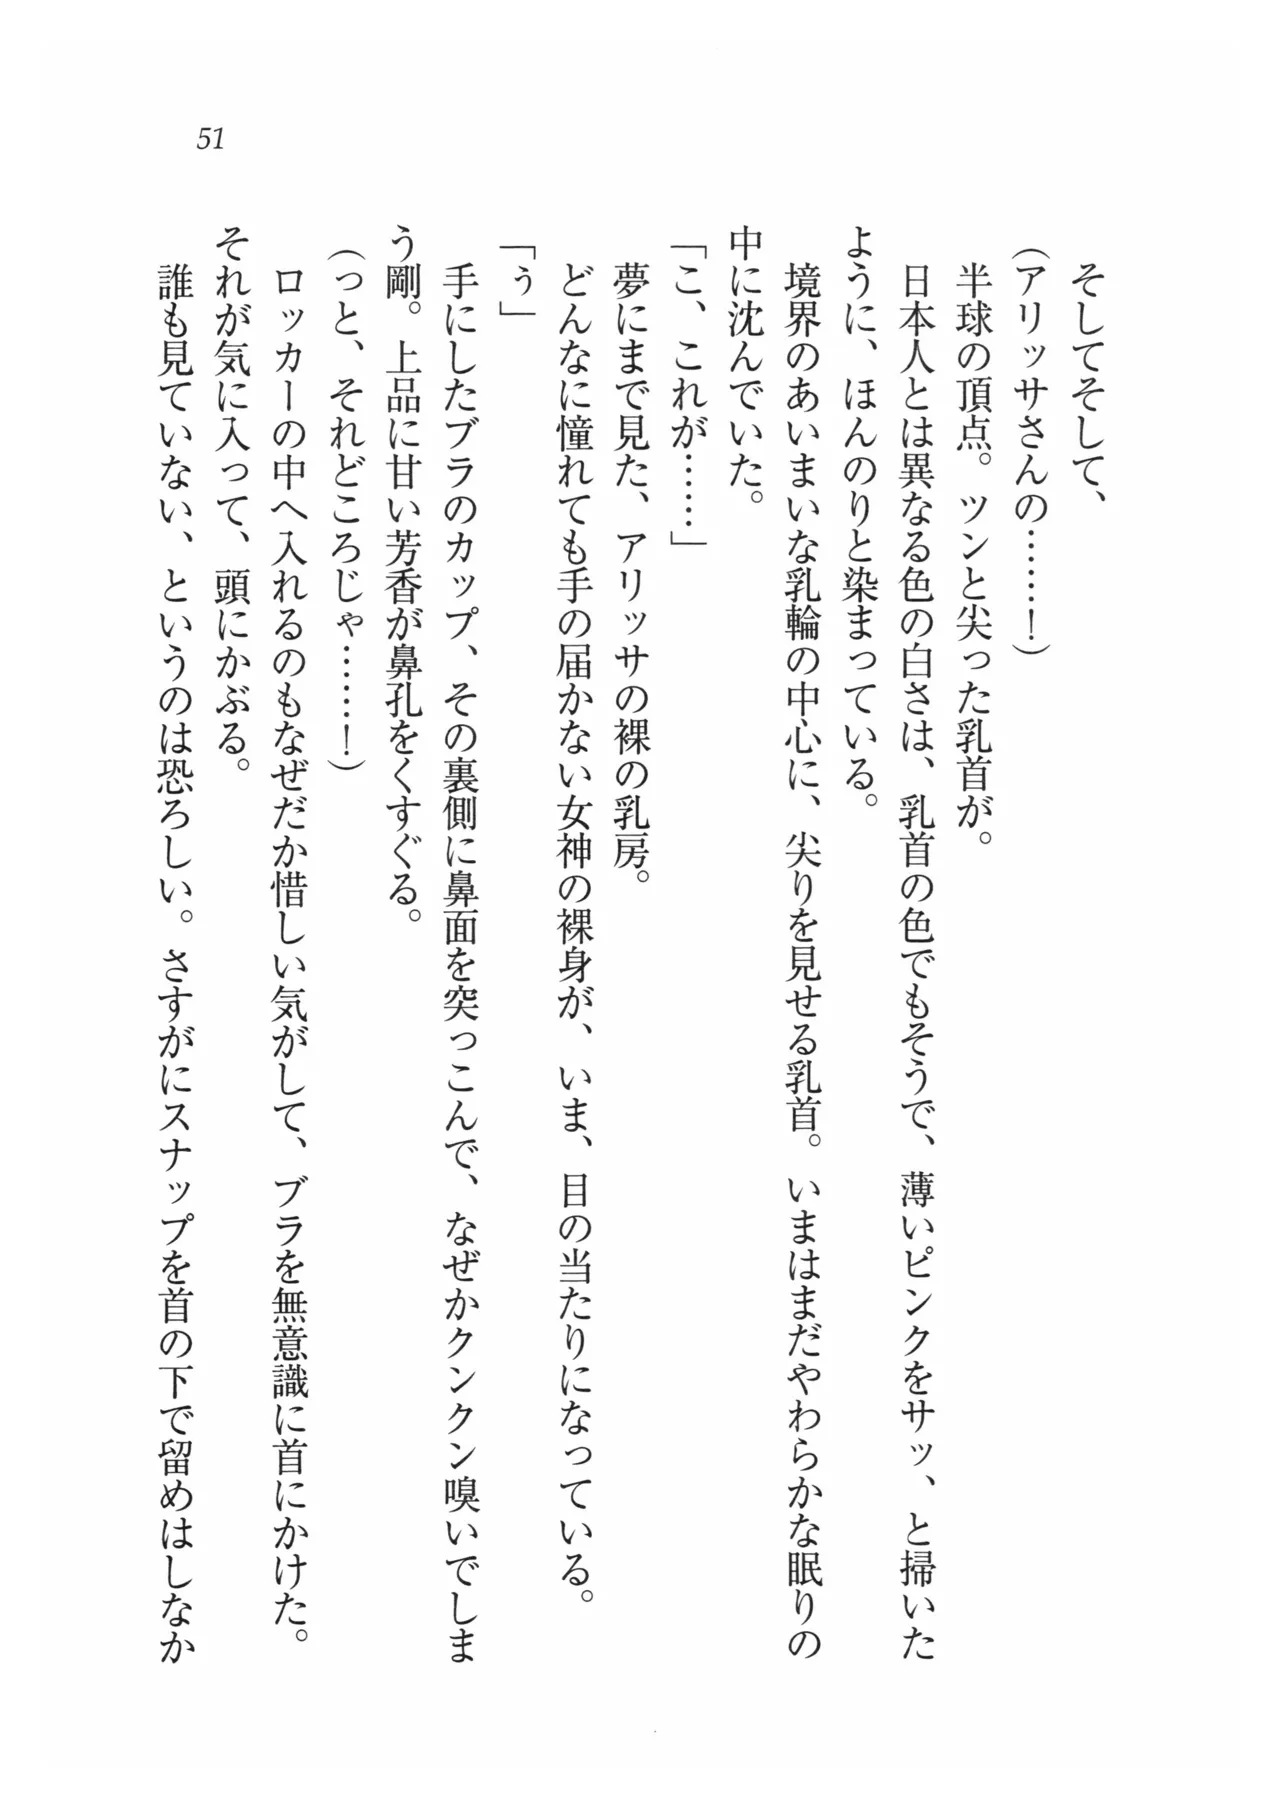 51
そしてそして、
（アリッサさんの……！）
半球の頂点。ツンと尖った乳首が。
日本人とは異なる色の白さは、乳首の色でもそうで、薄いピンクをサッ、と掃いた
ように、ほんのりと染まっている。
境界のあいまいな乳輪の中心に、尖りを見せる乳首。いまはまだやわらかな眠りの
中に沈んでいた。
「こ、これが……」
夢にまで見た、アリッサの裸の乳房。
どんなに憧れても手の届かない女神の裸身が、いま、目の当たりになっている。
「ぅ」
手にしたブラのカップ、その裏側に鼻面を突っこんで、なぜかクンクン嗅いでしま
う剛。上品に甘い芳香が鼻孔をくすぐる。
（っと、それどころじゃ……！）
ロッカーの中へ入れるのもなぜだか惜しい気がして、ブラを無意識に首にかけた。
それが気に入って、頭にかぶる。
誰も見ていない、というのは恐ろしい。さすがにスナップを首の下で留めはしなか